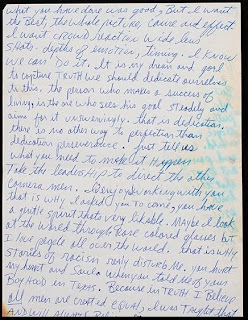 what you have done was good, But I want
the Best, the whole picture, cause and effect.
I want crowd reaction wide lens
shots. depths of emotion, timing. I know
we can do it. It is my dream and goal
to capture TRUTH we should dedicate ourselves
to this. the person who makes a success of
living, is the one who sees his goal steadly and
aims for it unsweringly. that is dedication,
there is no other way to perfection than
dedication perserverance. Just tell us
what you need to make it happen
Take the leadership to direct the other
camera men. I enjoy working with you
that is why I asked you to come, you have
a gentle spirit thats very likable. Maybe I look
at the world through Rose colored glasses but
I love people all over the world. that is why
stories of racism really disturb me. you hurt
my heart and soul when you told me of your
Boy hood in Texas. Because in TRUTH I Believe
ALL men are created equal, I was Taught that
AND will always